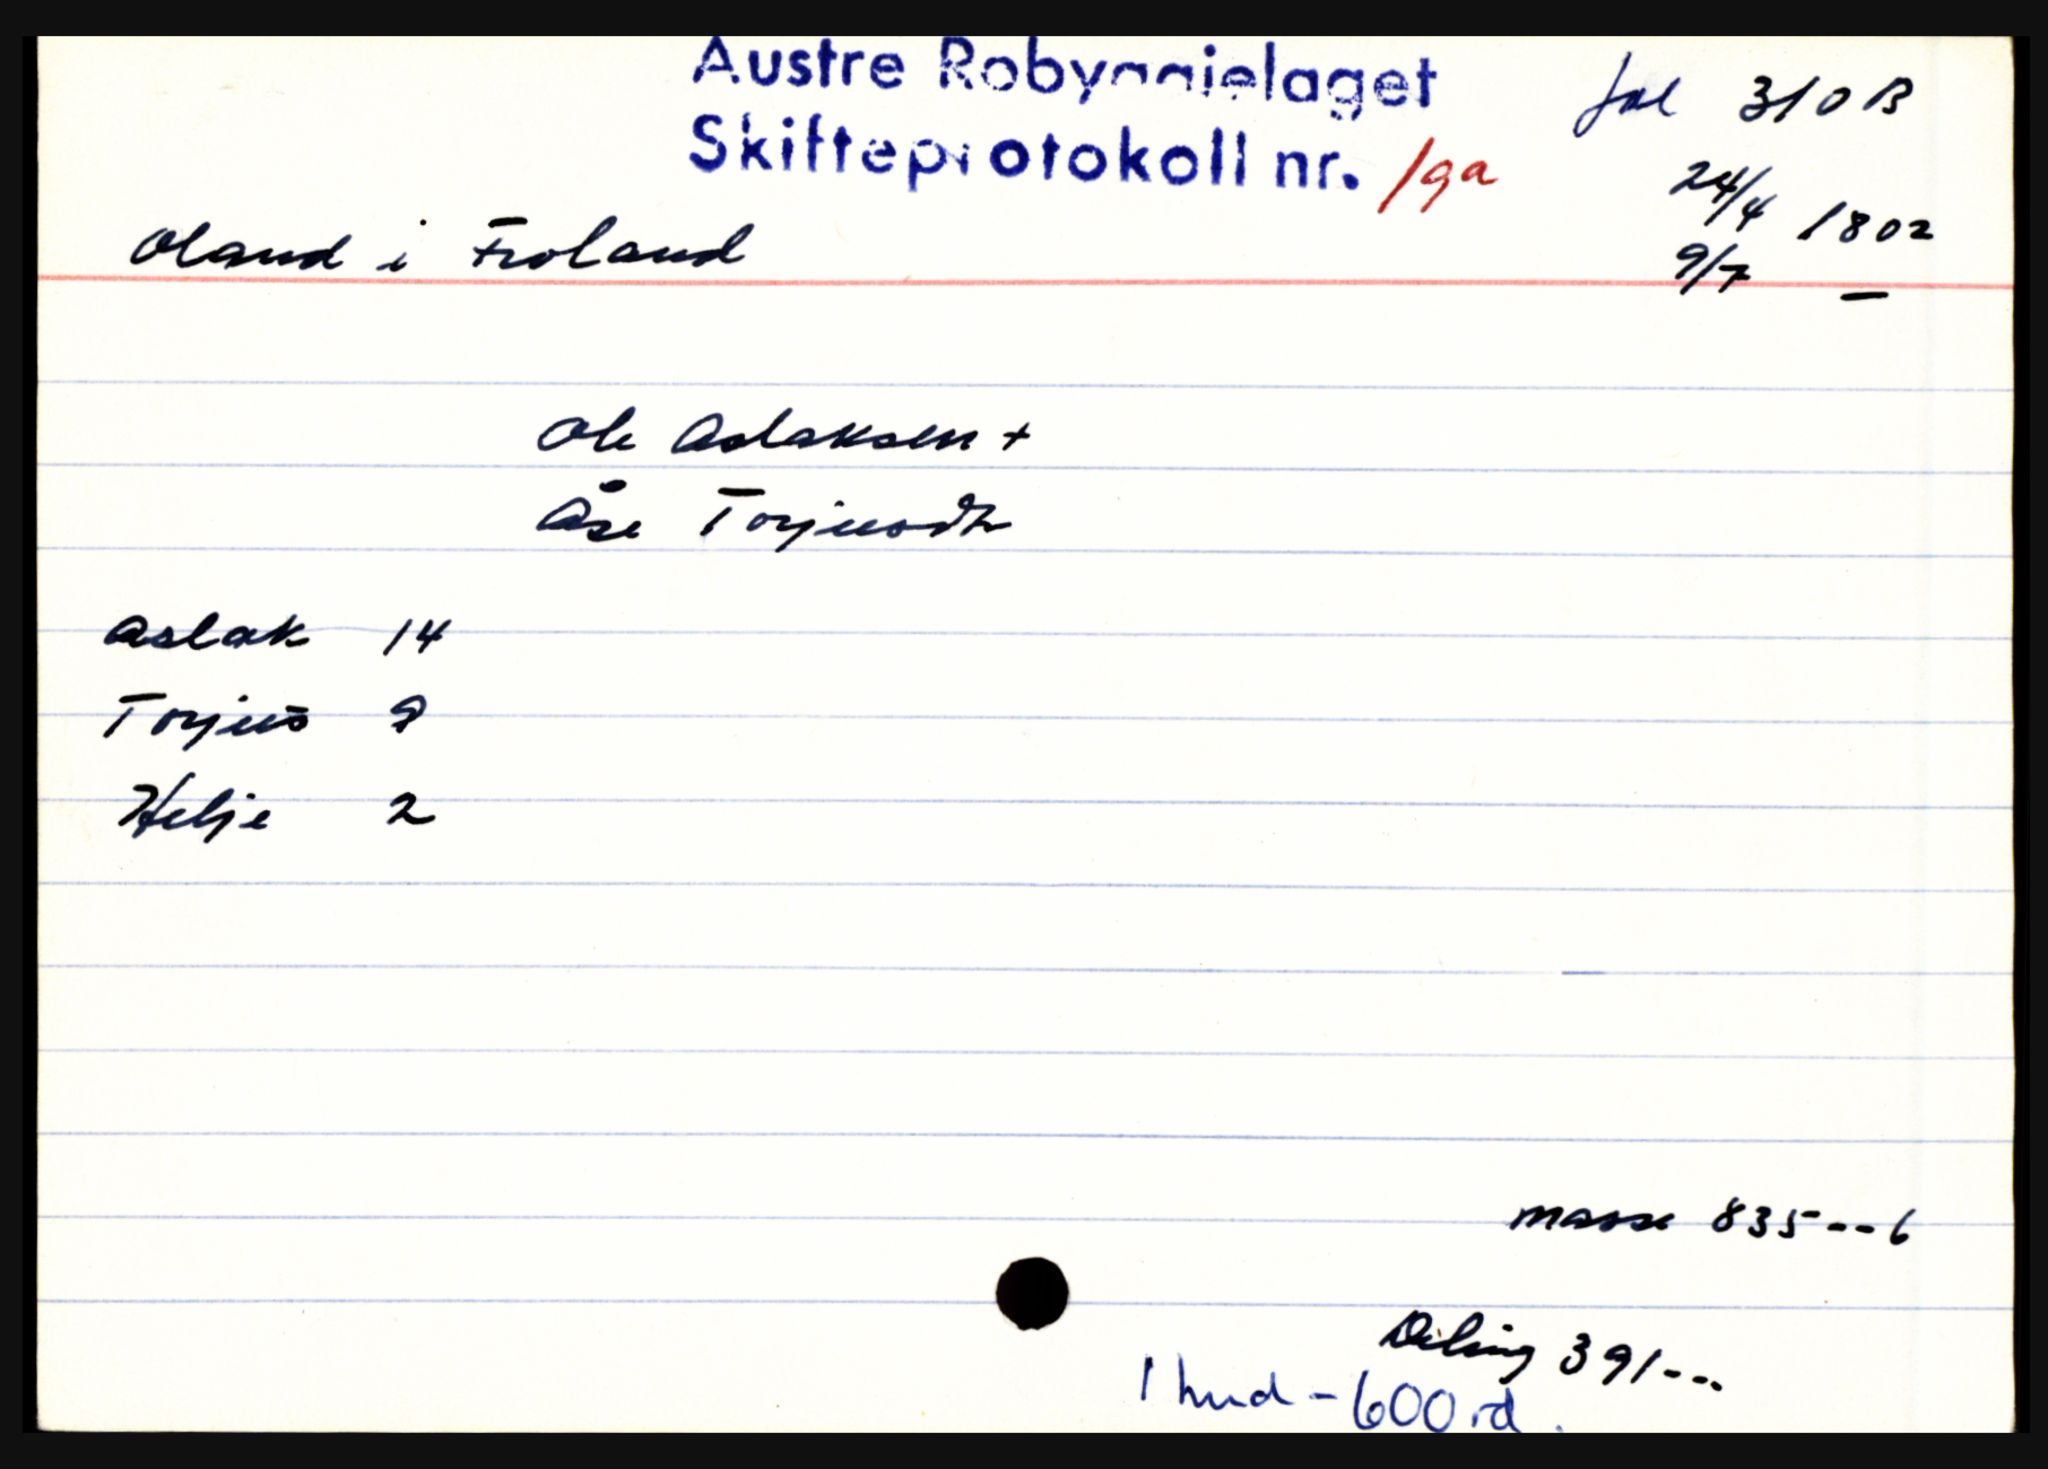 Austre Robyggjelaget
Skifteprotokoll nr. 19a
fol 310 B
24/4 1802
9/7 –
Oland i Froland
Ole Aslaksen +
Åse Torjusdtr
Aslak 14
Torjus 9
Helje 2
masse 835 - - 6
Deling 391 - - -
1 hud - 600 rd.